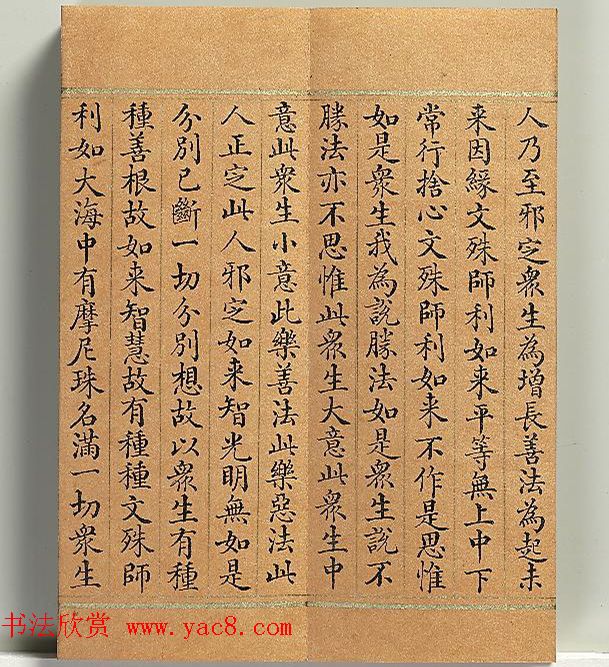 人乃至邪定衆生為增長善法為起未
来因緣文殊師利如来平等無上中下
常行捨心文殊師利如来不作是思惟
如是衆生我為說勝法如是衆生說不
勝法亦不思惟此衆生大意此衆生中
意此衆生小意此樂善法此樂惡法此
人正定此人邪定如来智光明無如是
分別已斷一切分別想故以衆生有種
種善根故如来智慧故有種種文殊師
利如大海中有摩尼珠名滿一切衆生
书法欣赏 www.yac8.com